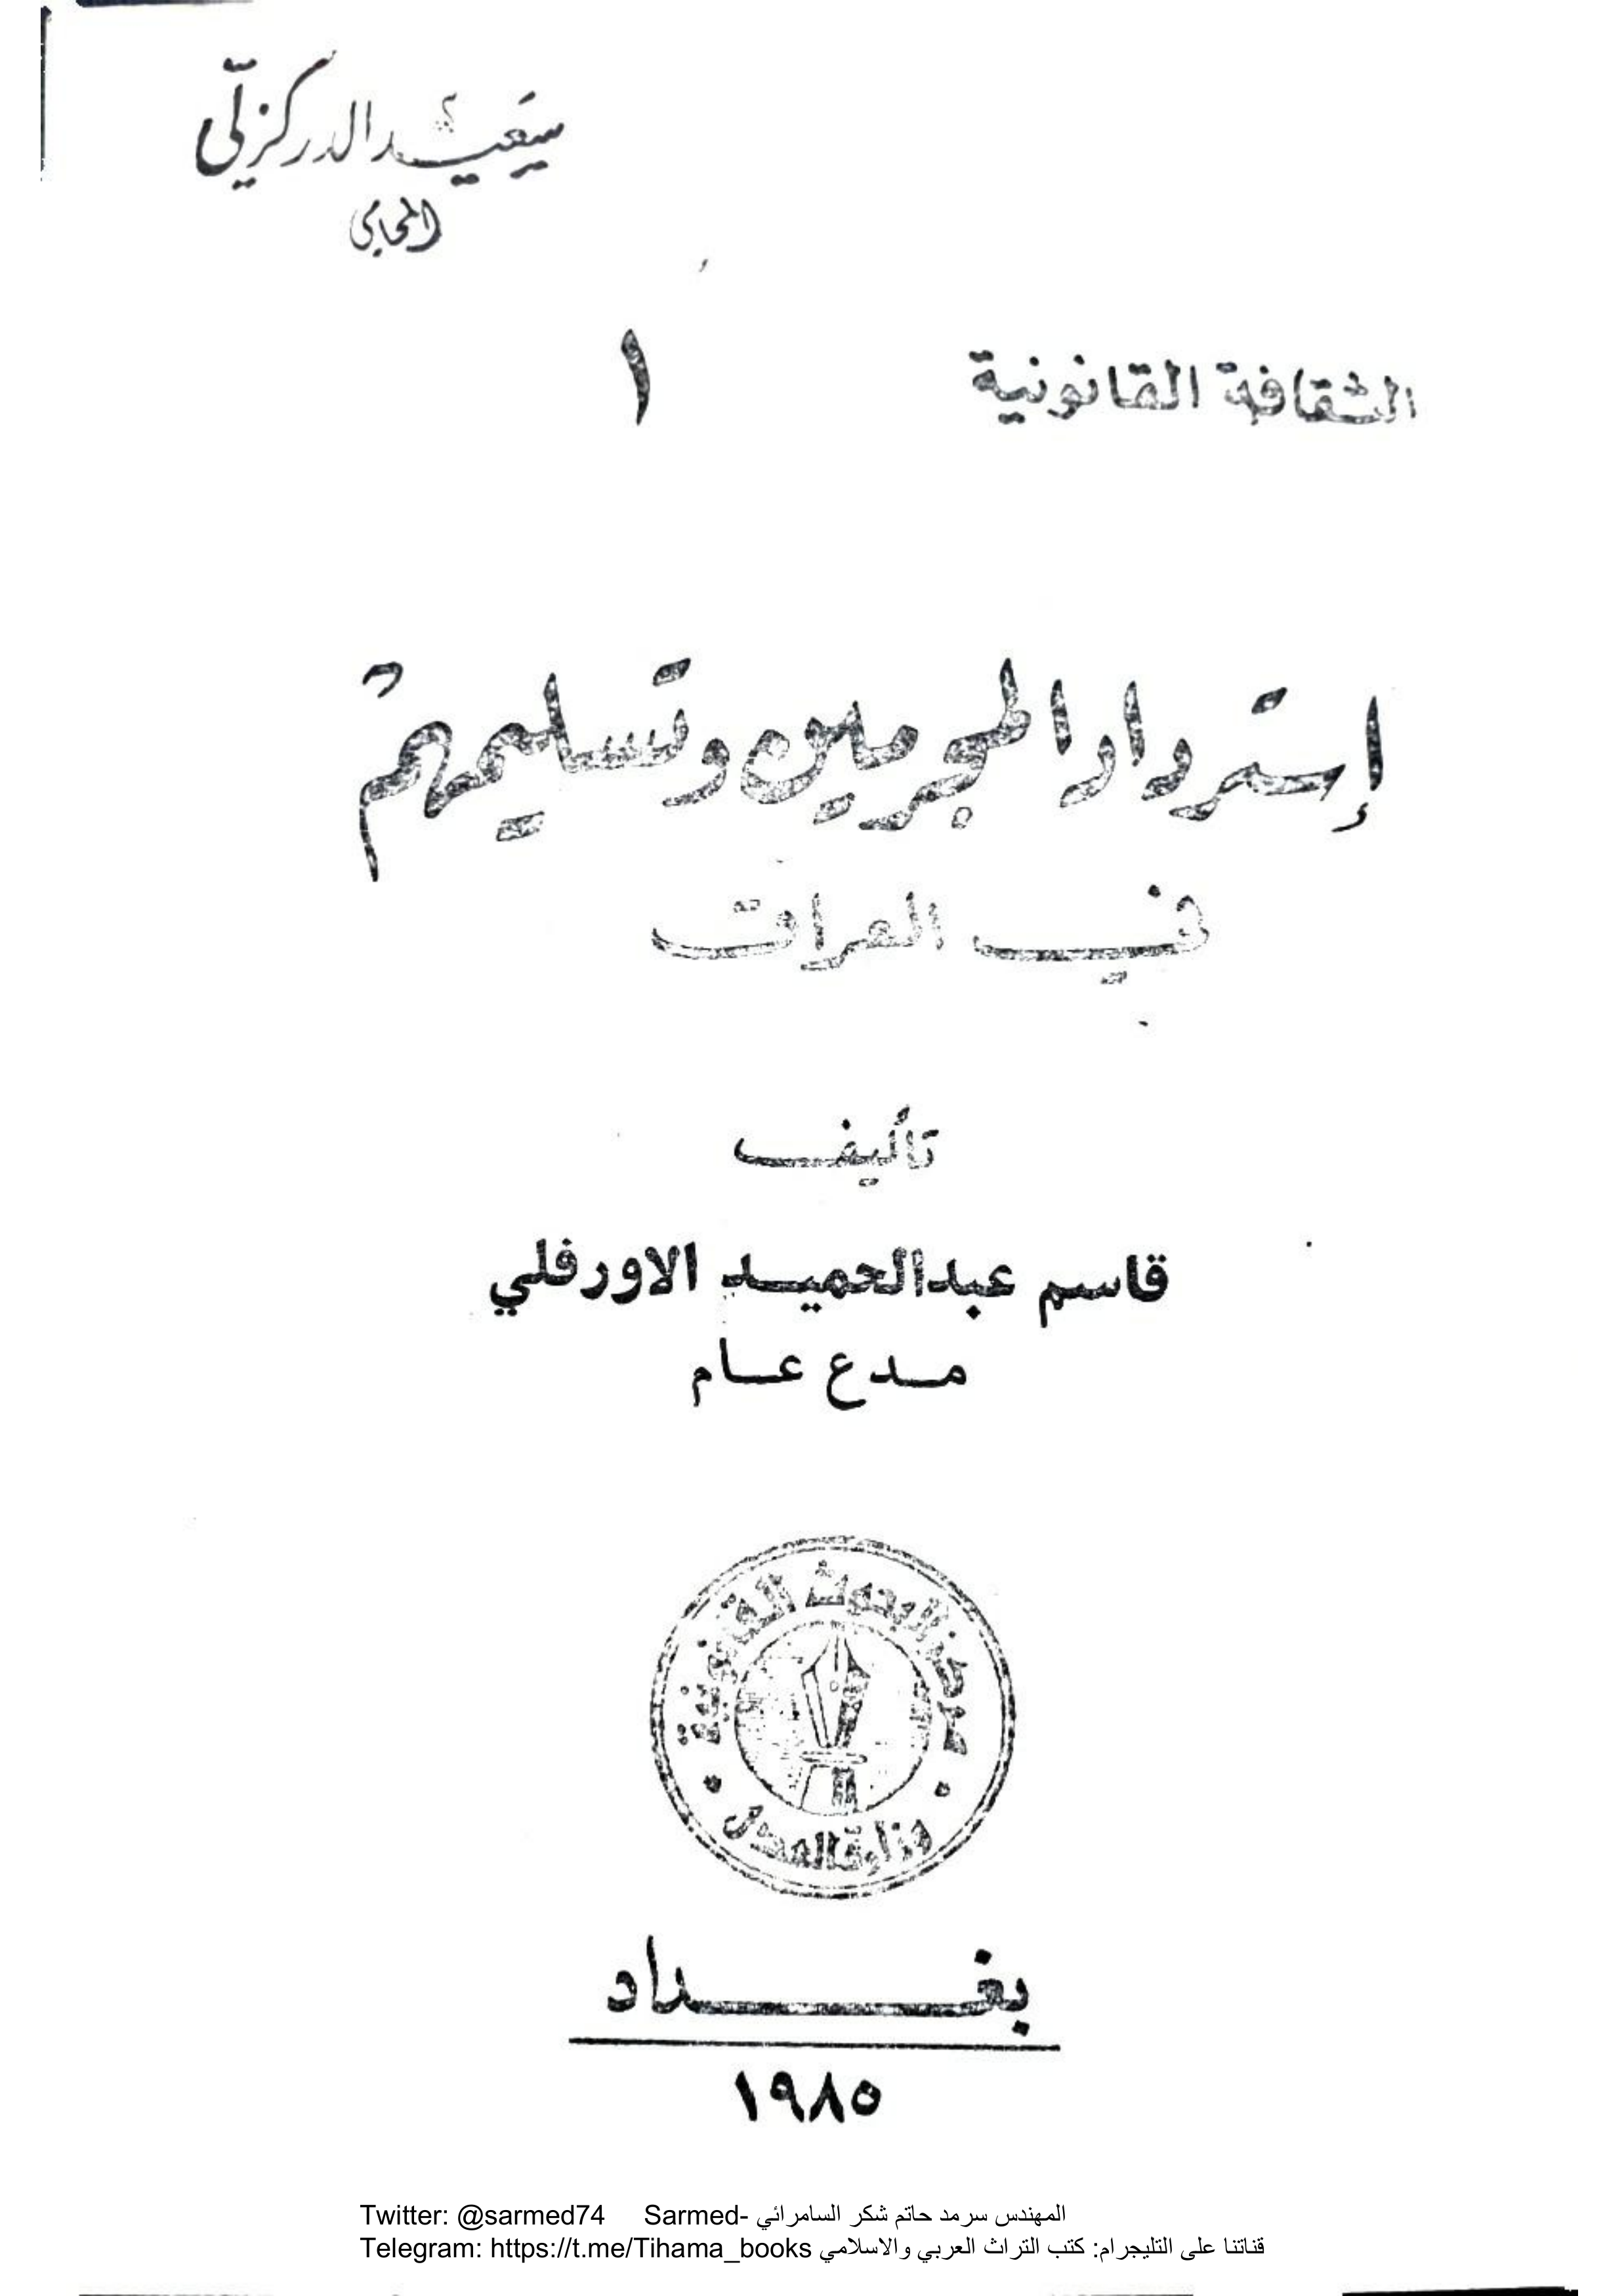 سعيد الدركزلّي
المحامي
الثقافة القانونية ١
إسترداد المجرمين وتسليمهم
في العراق
تأليف
قاسم عبدالحميد الاورفلي
مدع عام
مركز البحوث القانونية
وزارة العدل
بغداد
١٩٨٥
Twitter: @sarmed74 Sarmed- المهندس سرمد حاتم شكر السامرائي
Telegram: https://t.me/Tihama_books قناتنا على التليجرام: كتب التراث العربي والاسلامي